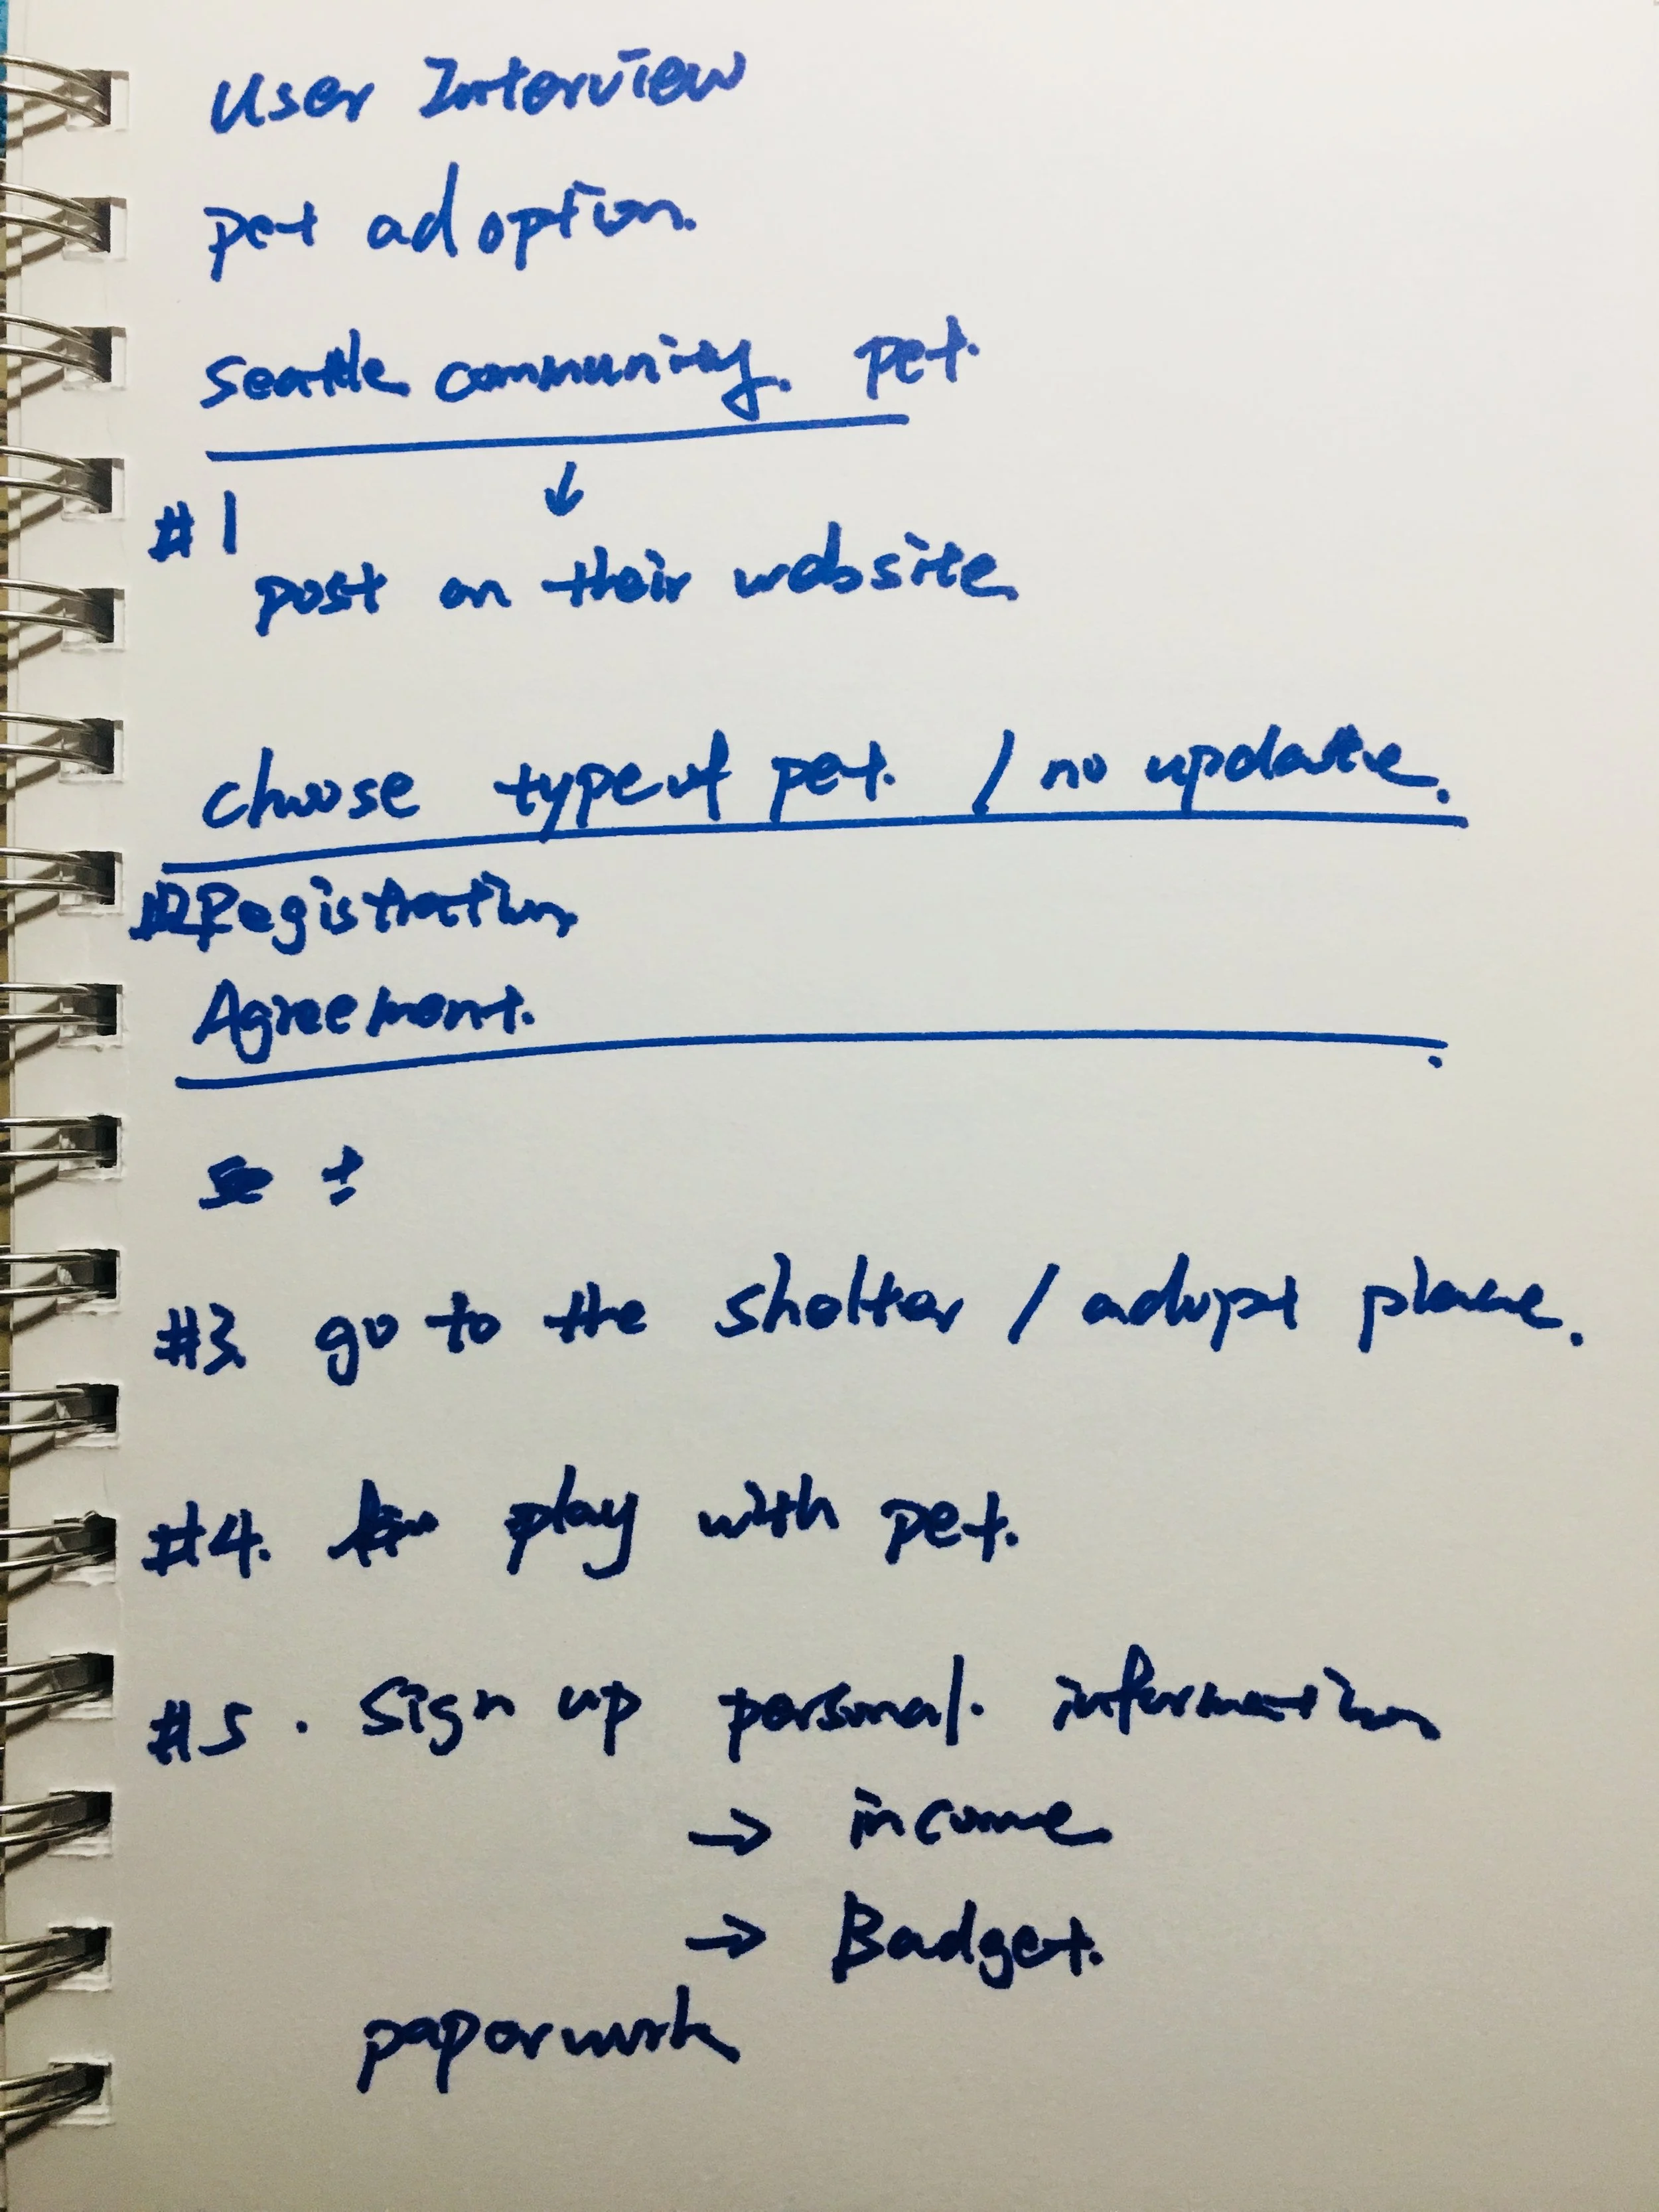 User Interview
pet adoption.
Seattle community. pet.
↓
#1
post on their website
choose type of pet. / no update.
Registration
Agreement.
#3 go to the shelter / adopt place.
#4. play with pet.
#5. Sign up personal. information
→ income
→ Badget.
paperwork